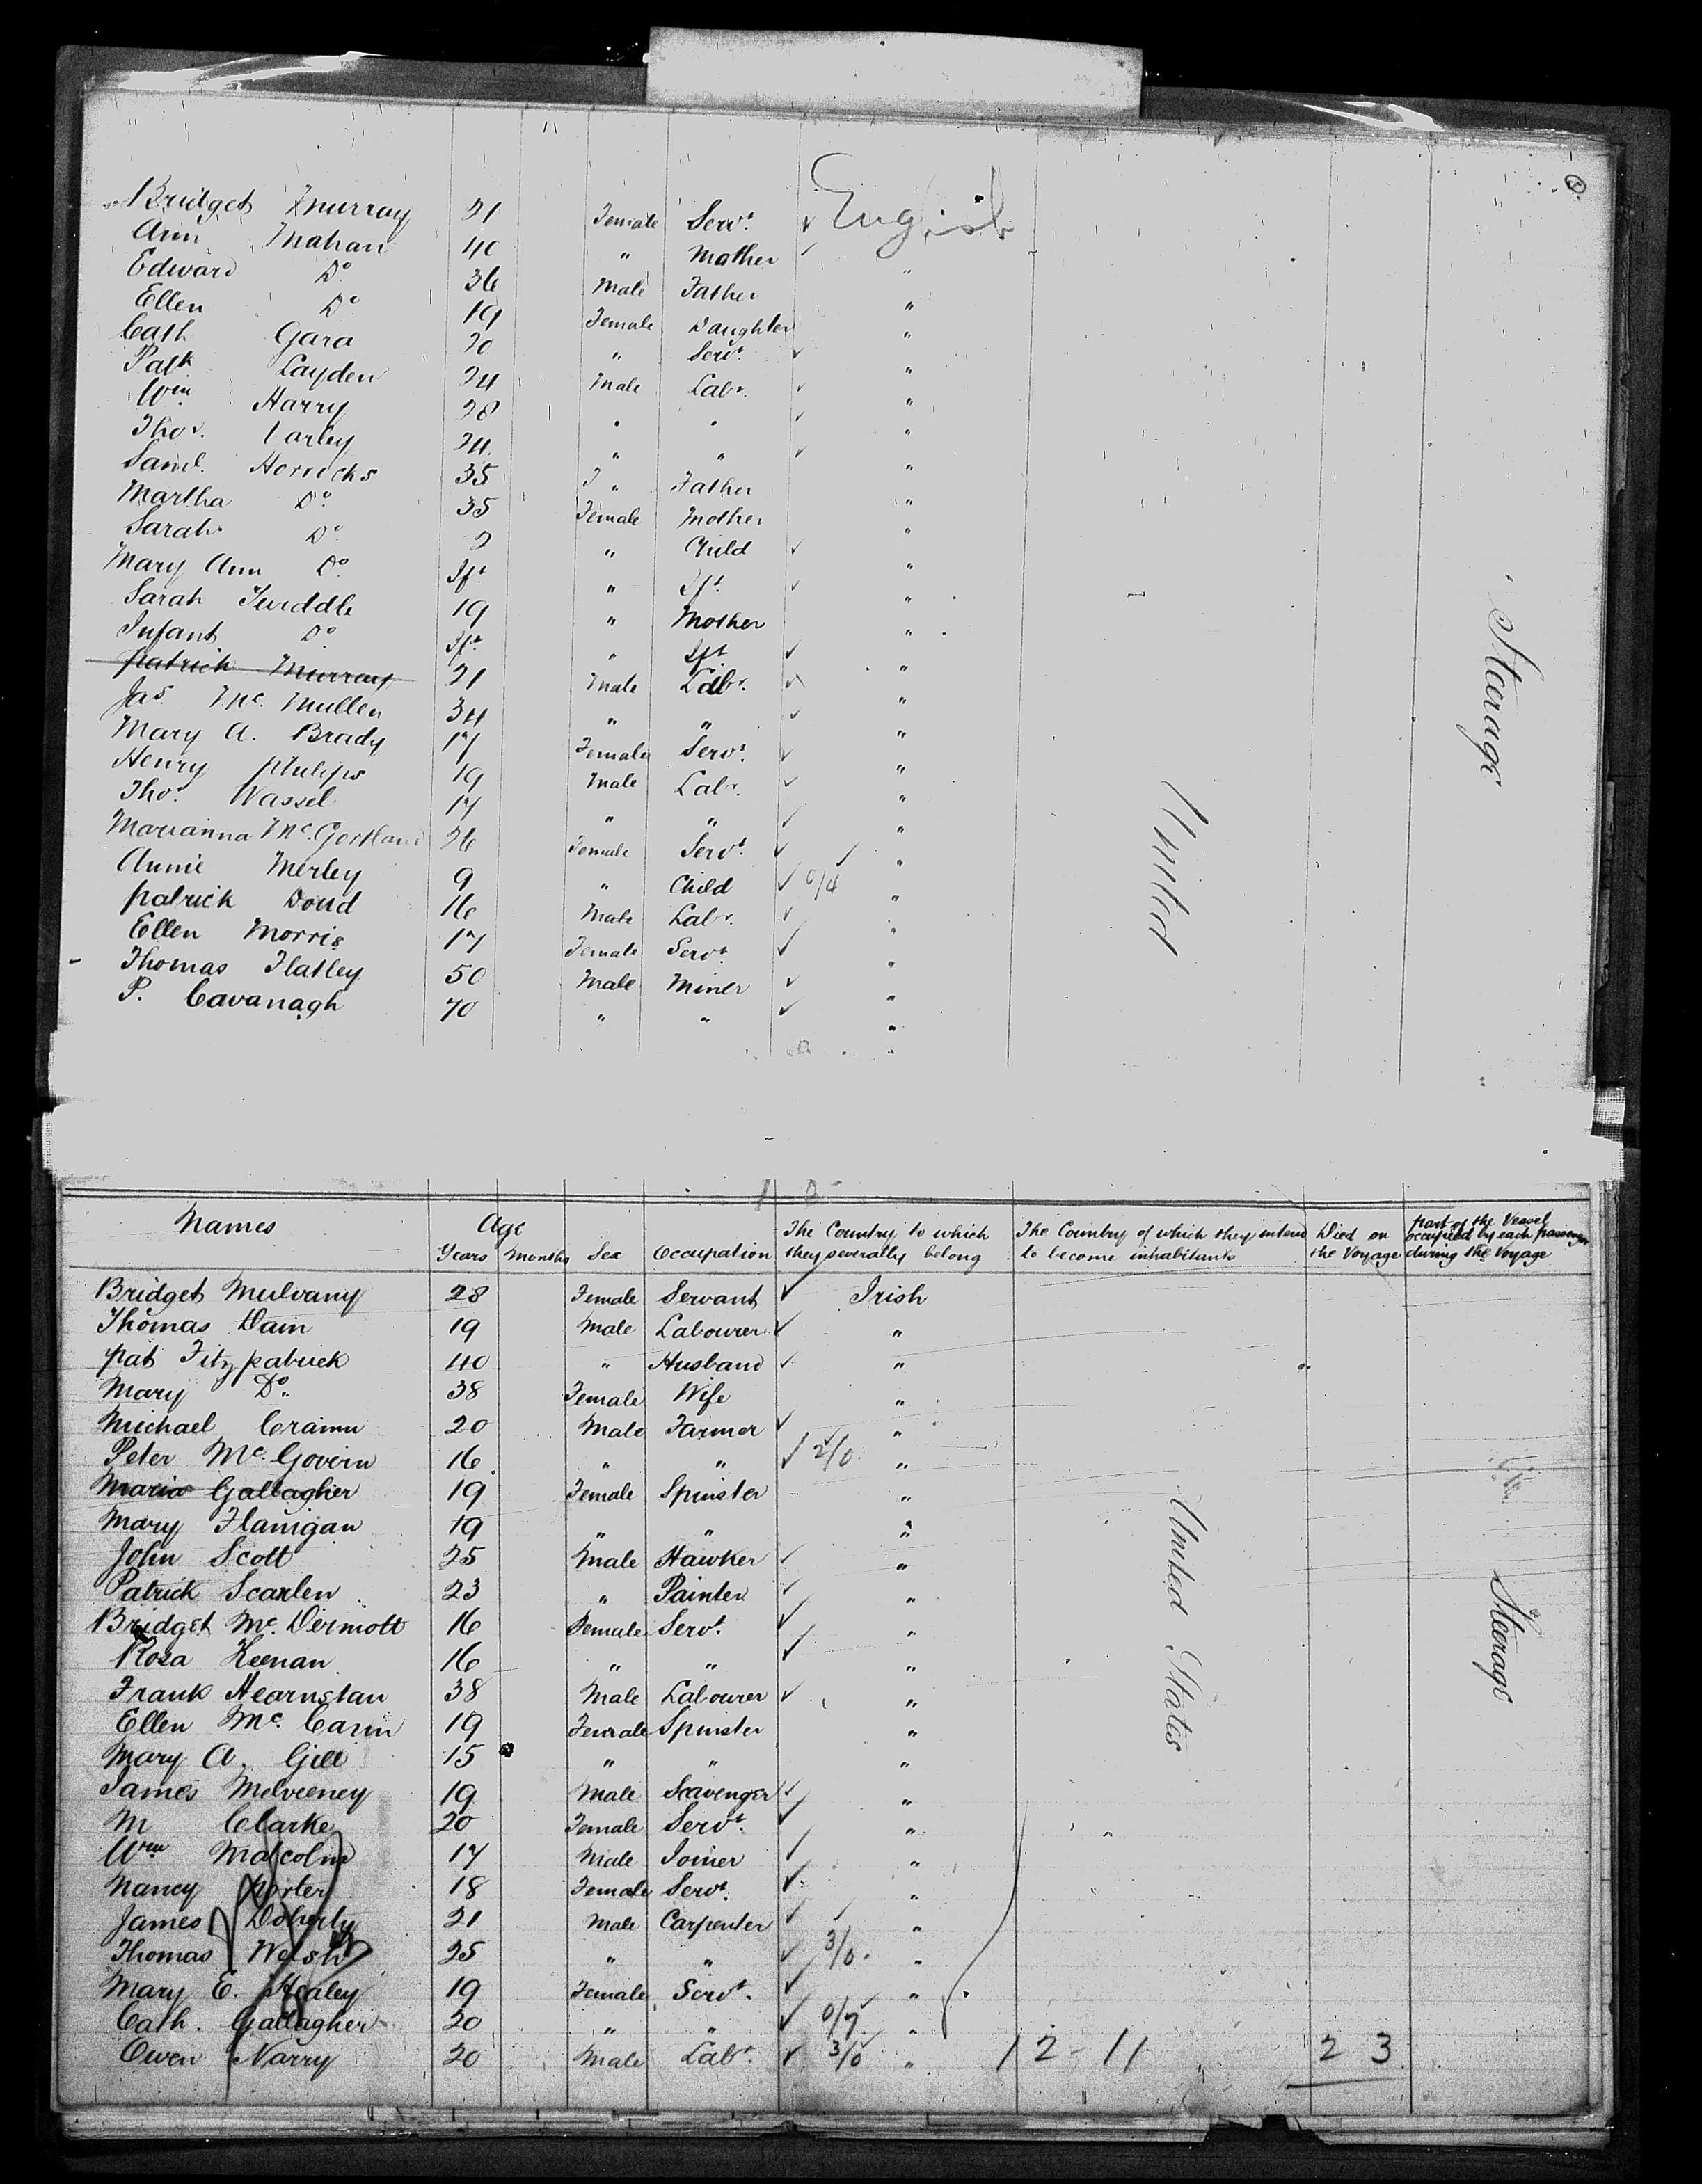 Bridget Murray 21 Female Servt. ✓ English
Ann Mahan 40 " Mother ✓
Edward Do 36 Male Father "
Ellen Do 19 Female Daughter "
Cath Gara 20 " Servt. ✓ "
Patk Layden 24 Male Labr. ✓ "
Wm Harry 28 " " ✓ "
Thos. Varley 24 " " ✓ "
Saml. Horrocks 35 " Father "
Martha Do 35 Female Mother "
Sarah Do 2 " Child ✓ "
Mary Ann Do Ift " Ift ✓ "
Sarah Twiddle 19 " Mother "
Infant Do Ift " Ift ✓ "
patrick Murray 21 Male Labr. "
Jas. Mc. Mullen 34 " " ✓ "
Mary A. Brady 17 Female Servt. ✓ "
Henry philips 19 Male Labr. ✓ "
Thos. Wassel 17 " " ✓ "
Marianna Mc. Gortland 26 Female Servt. ✓ "
Annie Merley 9 " Child ✓ 0/4 "
patrick Doud 16 Male Labr. ✓ "
Ellen Morris 17 Female Servt. ✓ "
Thomas Flatley 50 Male Miner ✓ "
P. Cavanagh 70 " " ✓ "
United
Steerage
Names Age Years Months Sex Occupation The Country to which they severally belong The Country of which they intend to become inhabitants Died on the Voyage part of the Vessel occupied by each passenger during the Voyage
Bridget Mulvany 28 Female Servant ✓ Irish
Thomas Dain 19 Male Labourer ✓ "
pat Fitzpatrick 40 " Husband ✓ "
Mary Do. 38 Female Wife "
Michael Crainn 20 Male Farmer ✓ "
Peter Mc. Govern 16 " " ✓ 2/0 "
Maria Gallagher 19 Female Spinster "
Mary Flanigan 19 " " "
John Scott 25 Male Hawker ✓ "
Patrick Scanlen 23 " Painter ✓ "
Bridget Mc. Dermott 16 Female Servt. ✓ "
Rosa Keenan 16 " " ✓ "
Frank Hearnstan 38 Male Labourer ✓ "
Ellen Mc. Cann 19 Female Spinster "
Mary A. Gill 15 " " "
James Melveeney 19 Male Scavenger ✓ "
M Clarke 20 Female Servt. ✓ "
Wm Malcolm 17 Male Joiner ✓ "
Nancy porter 18 Female Servt. ✓ "
James Doherty 21 Male Carpenter ✓ "
Thomas Welsh 25 " " ✓ 3/0 "
Mary E. Healey 19 Female Servt. ✓ "
Cath. Gallagher 20 " " ✓ 0/7 "
Owen Narry 20 Male Labr. ✓ 3/0 " 12 - 11 23
United States
Steerage